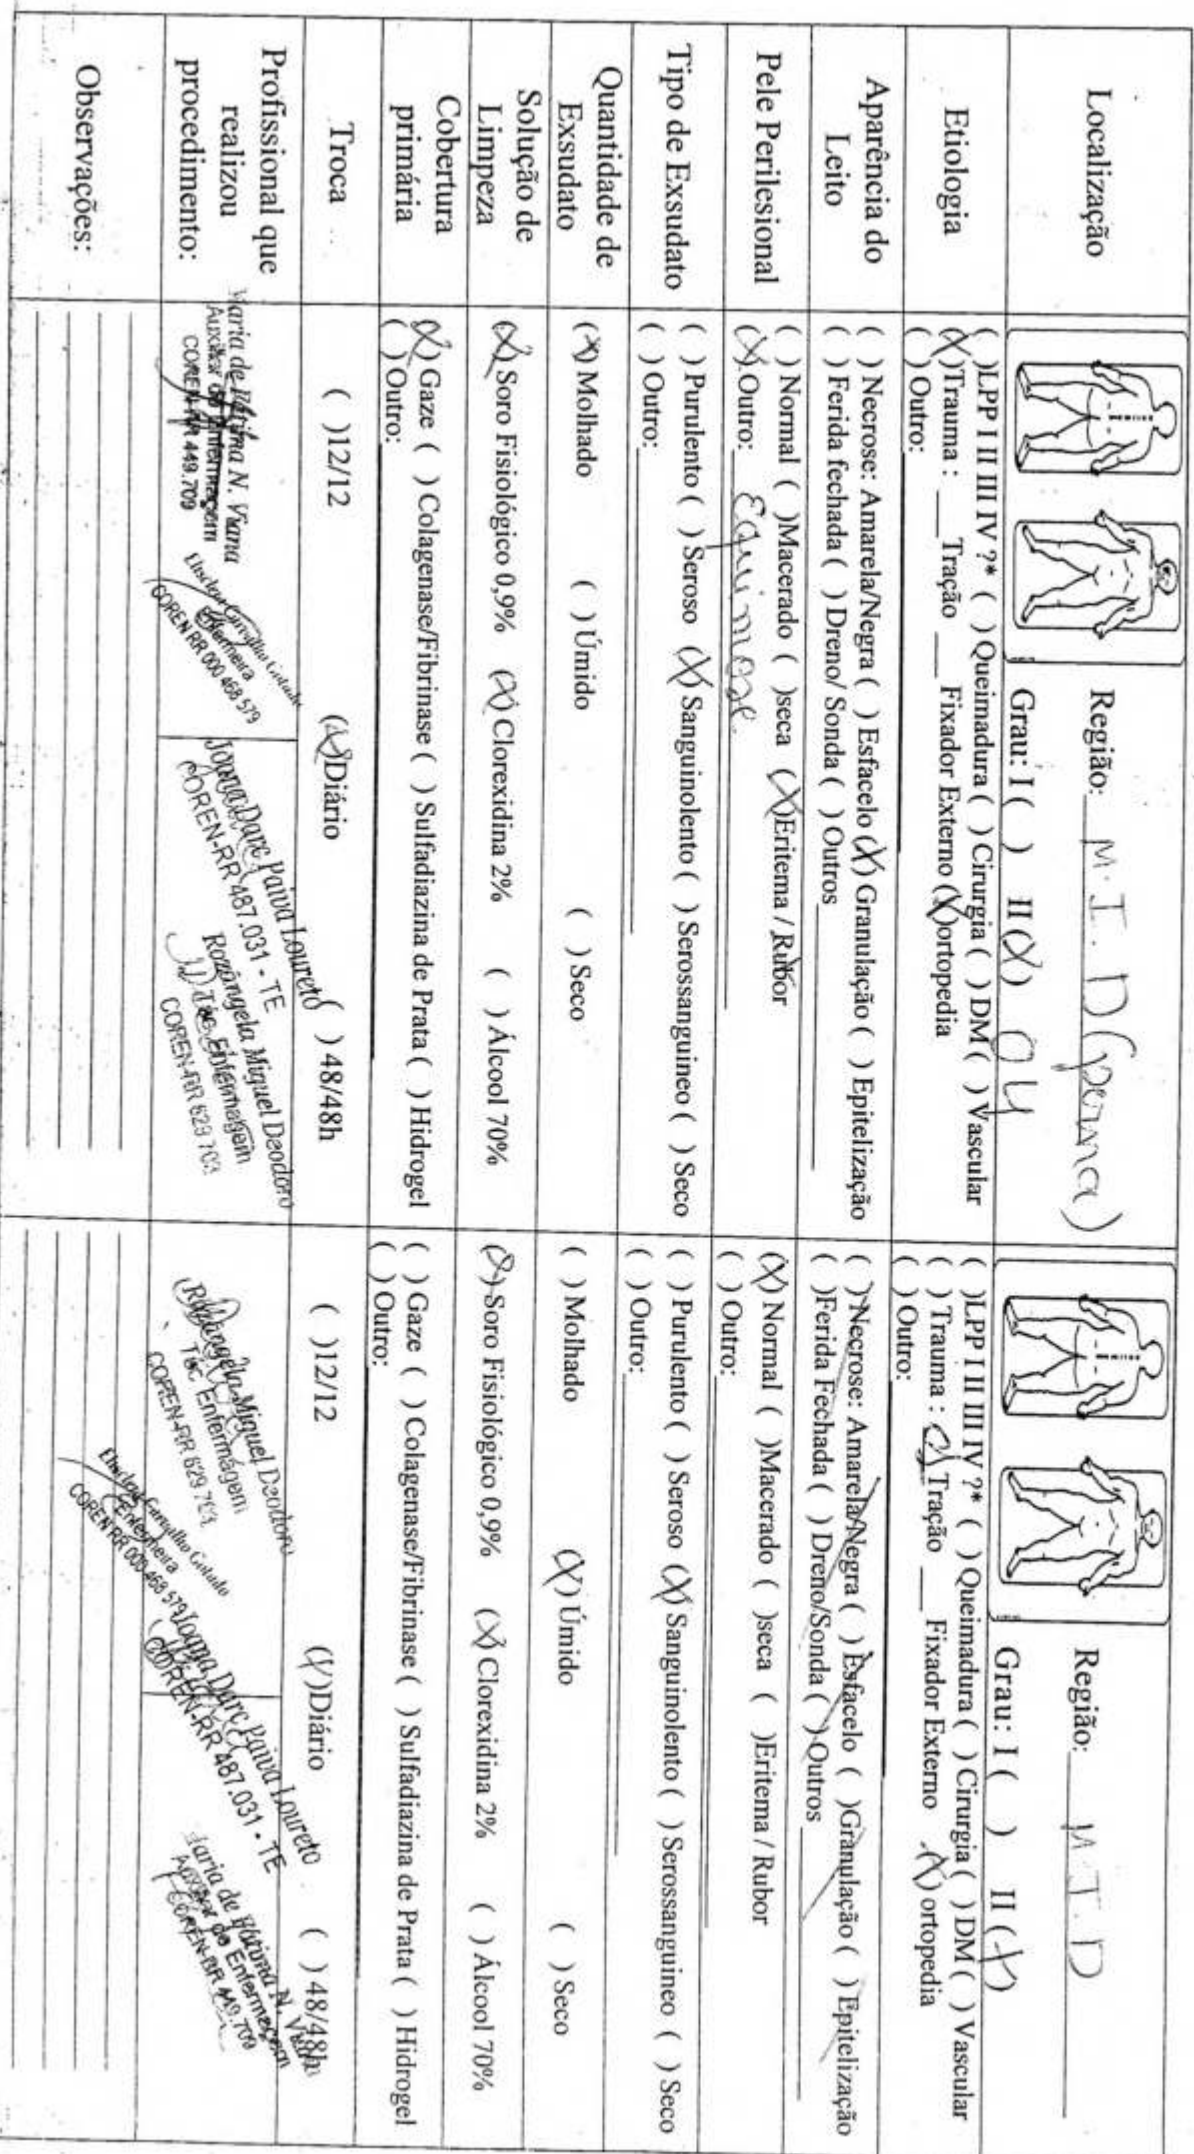 Localização
Região: M.I.D (perna)
Grau: I ( ) II (X) 04
Região: M.I.D
Grau: I ( ) II (X)
Etiologia
( )LPP I II III IV ?* ( )Queimadura ( ) Cirurgia ( ) DM ( ) Vascular
(X)Trauma : ___Tração ___ Fixador Externo (X)ortopedia
( ) Outro:
( )LPP I II III IV ?* ( )Queimadura ( ) Cirurgia ( ) DM ( ) Vascular
( ) Trauma : Tração ___ Fixador Externo (X) ortopedia
( ) Outro:
Aparência do
Leito
( ) Necrose: Amarela/Negra ( ) Esfacelo (X) Granulação ( ) Epitelização
( ) Ferida fechada ( ) Dreno/ Sonda ( ) Outros
( ) Necrose: Amarela/Negra ( ) Esfacelo ( )Granulação ( ) Epitelização
( )Ferida Fechada ( ) Dreno/Sonda ( ) Outros
Pele Perilesional
( ) Normal ( )Macerado ( )seca (X)Eritema / Rubor
(X) Outro: Equimose
(X) Normal ( )Macerado ( )seca ( )Eritema / Rubor
( ) Outro:
Tipo de Exsudato
( ) Purulento ( ) Seroso (X) Sanguinolento ( ) Serossanguineo ( ) Seco
( ) Outro:
( ) Purulento ( ) Seroso (X) Sanguinolento ( ) Serossanguineo ( ) Seco
( ) Outro:
Quantidade de
Exsudato
(X) Molhado ( ) Úmido ( ) Seco
( ) Molhado (X) Úmido ( ) Seco
Solução de
Limpeza
(X) Soro Fisiológico 0,9% (X) Clorexidina 2% ( ) Álcool 70%
(X) Soro Fisiológico 0,9% (X) Clorexidina 2% ( ) Álcool 70%
Cobertura
primária
(X) Gaze ( ) Colagenase/Fibrinase ( ) Sulfadiazina de Prata ( ) Hidrogel
( ) Outro:
( ) Gaze ( ) Colagenase/Fibrinase ( ) Sulfadiazina de Prata ( ) Hidrogel
( ) Outro:
Troca
( )12/12 (X)Diário ( ) 48/48h
( )12/12 (X)Diário ( ) 48/48h
Profissional que
realizou
procedimento:
Maria de Fátima N. Viana
Auxiliar de Enfermagem
COREN-RR 449.709
Carvalho
Enfermeira
COREN RR 000 468 579
Joana Darc Paiva Loureto
COREN-RR 487.031 - TE
Rozângela Miguel Deodoro
Téc. Enfermagem
COREN-RR 629 703
Rozângela Miguel Deodoro
Téc Enfermagem
COREN-RR 629 703
Carvalho
Enfermeira
COREN RR 000 468 579
Joana Darc Paiva Loureto
COREN-RR 487.031 - TE
Maria de Fátima N. Viana
Auxiliar de Enfermagem
COREN-RR 449.709
Observações: